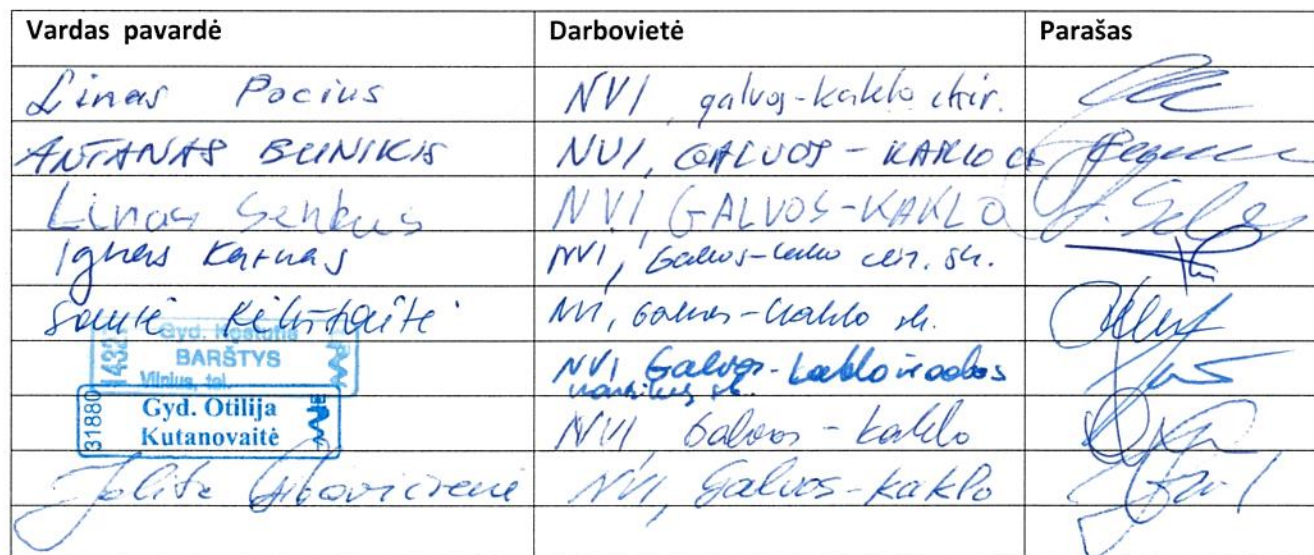 Vardas pavardė Darbovietė Parašas
Linas Pocius NVI, galvos-kaklo chir.
ANTANAS BUNIKIS NVI, GALVOS - KAKLO
Linas Senkus NVI, GALVOS-KAKLO
Ignas Karnas NVI, Galvos-kaklo sk.
Saulė NVI, Galvos-kaklo sk.
Gyd. Kęstutis
BARŠTYS
Vilnius, tel.
NVI Galvos-kaklo
31880
Gyd. Otilija
Kutanovaitė
NVI Galvos - kaklo
Jolita NVI, Galvos-kaklo